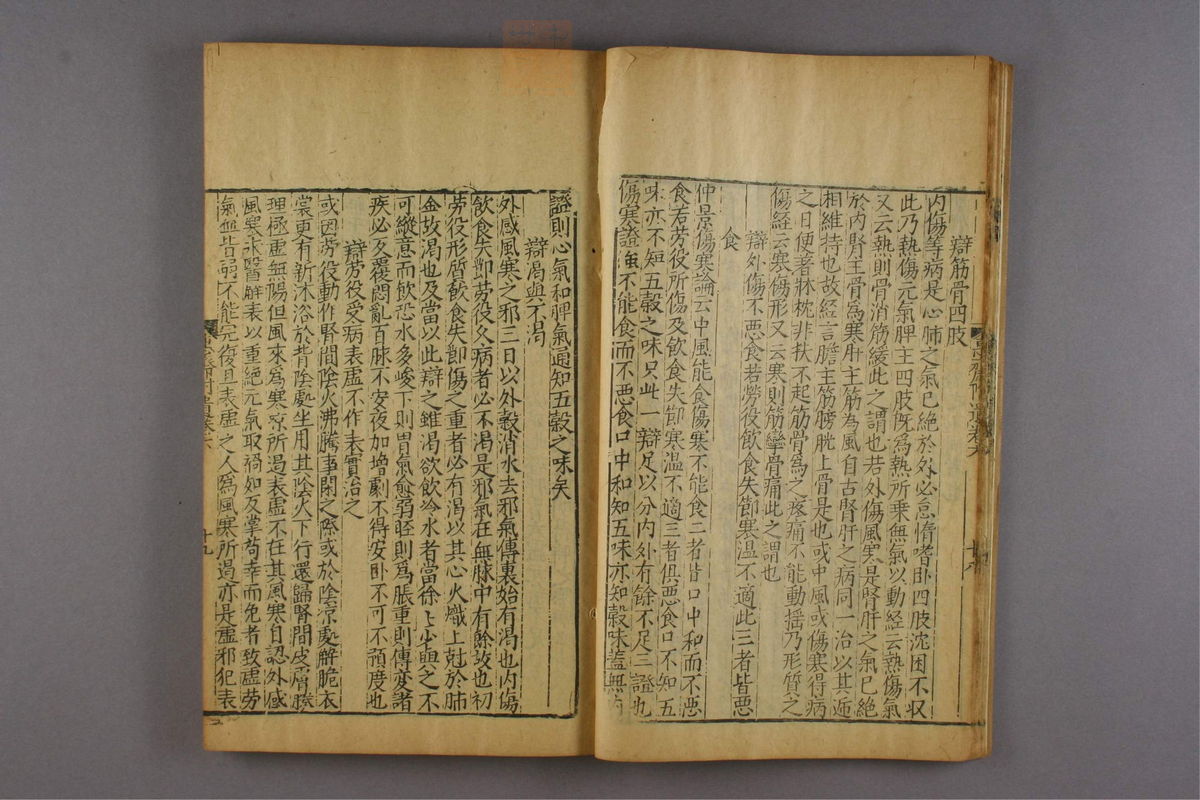 辯筋骨四肢
内傷等病是心肺之氣已絶於外必怠惰嗜卧四肢沈困不収
此乃熱傷元氣脾主四肢既為熱所乗無氣以動經云熱傷氣
又云熱則骨消筋緩此之謂也若外傷風寒是腎肝之氣已絶
於内腎主骨為寒肝主筋為風自古腎肝之病同一治以其逓
相維持也故經言膽主筋膀胱上骨是也或中風或傷寒得病
之日便著牀枕非扶不起筋骨為之疼痛不能動揺乃形質之
傷経云寒傷形又云寒則筋攣骨痛此之謂也
辯外傷不悪食若勞役飲食失節寒温不適此三者皆悪
食
仲景傷寒論云中風能食傷寒不能食二者皆口中和而不悪
食若劳役所傷及飲食失節寒温不適三者俱悪食口不知五
味亦不知五穀之味只此一辯足以分内外有餘不足二證也
傷寒證雖不能食而不悪食口中和知五味亦知穀味蓋無内
證則心氣和脾氣通知五穀之味矣
辯渴與不渴
外感風寒之邪三日以外穀消水去邪氣傳裏始有渴也内傷
飲食失節劳役久病者必不渴是邪氣在無脉中有餘故也初
劳役形質飲食失節傷之重者必有渴以其心火熾上尅於肺
金故渴也及當以此辯之雖渴欲飲冷水者當徐徐少與之不
可縱意而飲恐水多峻下則胃氣愈弱輕則為脹重則傳変諸
疾必反覆悶亂百脉不安夜加増劇不得安卧不可不預度也
辯劳役受病表虚不作表實治之
或因劳役動作腎間陰火沸騰事閑之際或於陰凉處解脱衣
裳更有新沐浴於背陰處坐用其陰火下行還歸腎間皮膚腠
理極虚無陽但風来為寒凉所遏表虚不任其風寒自認外感
風寒求醫解表以重絶元氣取禍如反掌苟幸而免者致虚劳
氣血皆弱不能完復且表虚之人為風寒所遏亦是虚邪犯表
十九